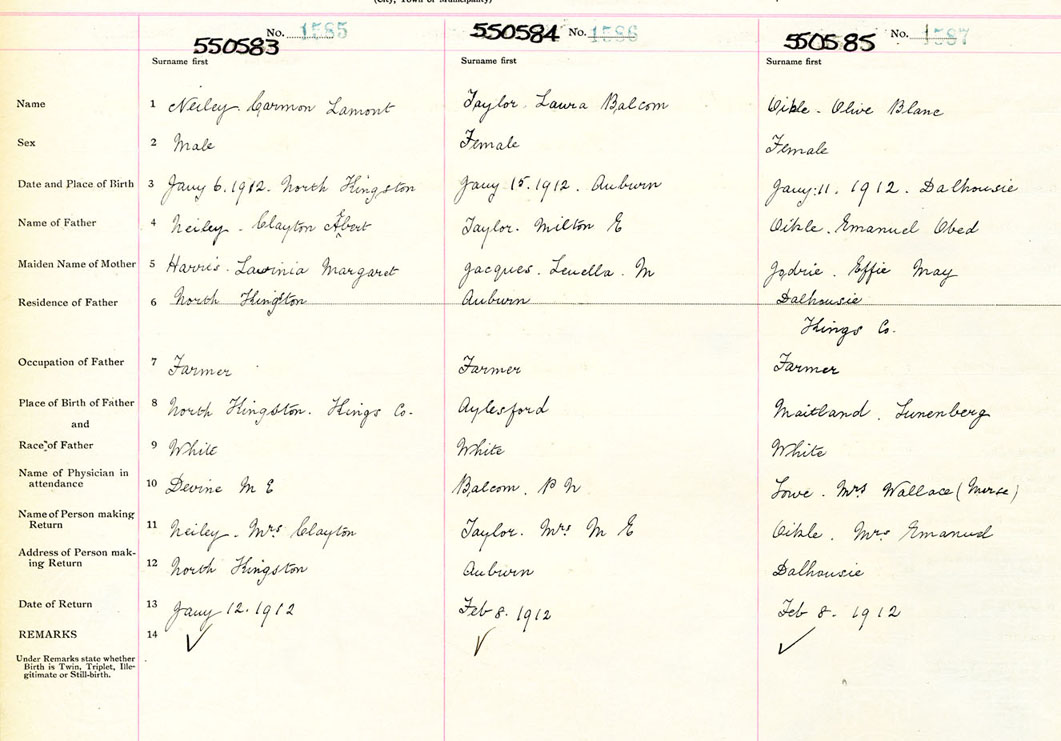 (City, Town or Municipality)
550583 No. 1585 550584 No. 1586 550585 No. 1587
Surname first Surname first Surname first
Name 1 Neiley. Carmon Lamont Taylor. Laura Balcom Oikle - Olive Blanc
Sex 2 Male Female Female
Date and Place of Birth 3 Jany 6. 1912. North Kingston Jany 15. 1912. Auburn Jany: 11. 1912. Dalhousie
Name of Father 4 Neiley - Clayton Abert Taylor. Milton E Oikle. Emanuel Obed
Maiden Name of Mother 5 Harris. Lavinia Margaret Jacques. Leuella. M Jodrie. Effie May
Residence of Father 6 North Kingston Auburn Dalhousie
Kings Co.
Occupation of Father 7 Farmer Farmer Farmer
Place of Birth of Father 8 North Kingston. Kings Co. Aylesford Maitland. Lunenberg
and
Race of Father 9 White White White
Name of Physician in
attendance 10 Devine M E Balcom. P N Lowe. Mrs Wallace (Nurse)
Name of Person making
Return 11 Neiley - Mrs Clayton Taylor. Mrs M E Oikle. Mrs Emanuel
Address of Person mak-
ing Return 12 North Kingston Auburn Dalhousie
Date of Return 13 Jany 12. 1912 Feb 8. 1912 Feb 8. 1912
REMARKS 14 ✓ ✓ ✓
Under Remarks state whether
Birth is Twin, Triplet, Ille-
gitimate or Still-birth.